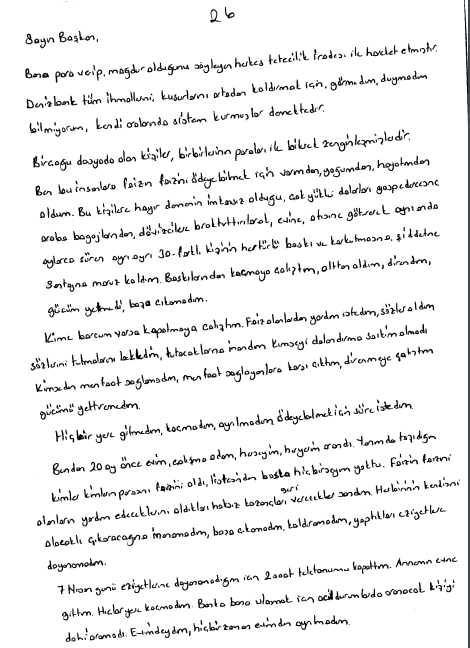 26
Sayın Başkan,
Bana para verip, mağdur olduğunu söyleyen herkes tefecilik iradesi ile hareket etmiştir.
Denizbank tüm ihmallerini, kusurlarını ortadan kaldırmak için, görmedim, duymadım
bilmiyorum, kendi aralarında sistem kurmuşlar demektedir.
Birçoğu dosyada olan kişiler, birbirlerinin paraları ile bilerek zenginleşmişlerdir.
Ben bu insanlara faizin faizini ödeyebilmek için varımdan, yoğumdan, hayatımdan
oldum. Bu kişilere hayır demenin imkansız olduğu, çok yüklü dolarları
araba bagajlarından, dövizcilere bıraktırılarak, evine, ofisine götürerek aynı anda
aylarca süren ayrı ayrı 30 farklı kişinin her türlü baskı ve korkutmasına, şiddetine
şantajına maruz kaldım. Baskılarından kaçmaya çalıştım, alttan aldım, direndim,
gücüm yetmedi, başa çıkamadım.
Kime borcum varsa kapatmaya çalıştım. Faiz alanlardan yardım istedim, sözler aldım
sözlerini tutmalarını bekledim, tutacaklarına inandım kimseyi dolandırma saikim olmadı
Kimseden menfaat sağlamadım, menfaat sağlayanlara karşı çıktım, direnmeye çalıştım
gücümü yettiremedim.
Hiçbir yere gitmedim, kaçmadım, ayrılmadım ödeyebilmek için süre istedim.
Bundan 20 ay önce evim, çalışma odam, herşeyim, huyerim arandı. Yanımda taşıdığım
kimler kimlerin parasını faizini aldı, listesinden başka hiçbirşeyim yoktu. Faizin faizini
alanların yardım edeceklerini aldıkları haksız kazançları geri verecekler sandım. Herbirinin kendisini
alacaklı çıkaracağına inanamadım, başa çıkamadım, kaldıramadım, yaptıkları eziyetlere
dayanamadım.
7 Nisan günü eziyetlerine dayanamadığım için 2 saat telefonumu kapattım. Annemin evine
gittim. Hiçbir yere kaçmadım. Banka bana ulaşmak için acil durumlarda aranacak kişiyi
dahi aramadı. Evimdeydim, hiçbir zaman evimden ayrılmadım.